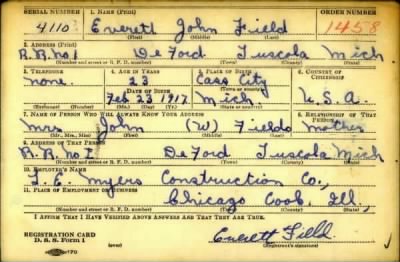 SERIAL NUMBER 1. NAME (Print) ORDER NUMBER
4110 Everett John Field 1458
(First) (Middle) (Last)
2. ADDRESS (Print)
R.R. No 1 DeFord Tuscola Mich
(Number and street or R. F. D. number) (Town) (County) (State)
3. TELEPHONE 4. AGE IN YEARS 5. PLACE OF BIRTH 6. COUNTRY OF CITIZENSHIP
none. 23 Cass City
DATE OF BIRTH (Town or county)
Feb 23 1917 Mich U.S.A.
(Exchange) (No.) (Mo.) (Day) (Yr.) (State or country)
7. NAME OF PERSON WHO WILL ALWAYS KNOW YOUR ADDRESS 8. RELATIONSHIP OF THAT PERSON
Mrs John (W) Fields Mother
(Mr., Mrs., Miss) (First) (Middle) (Last)
9. ADDRESS OF THAT PERSON
R.R. No I DeFord Tuscola Mich
(Number and street or R. F. D. number) (Town) (County) (State)
10. EMPLOYER'S NAME
L. E. Myers Construction Co.,
11. PLACE OF EMPLOYMENT OR BUSINESS
Chicago Cook Ill,
(Number and street or R. F. D. number) (Town) (County) (State)
I AFFIRM THAT I HAVE VERIFIED ABOVE ANSWERS AND THAT THEY ARE TRUE.
REGISTRATION CARD
D. S. S. Form 1 Everett Field
(over) (Registrant's signature)